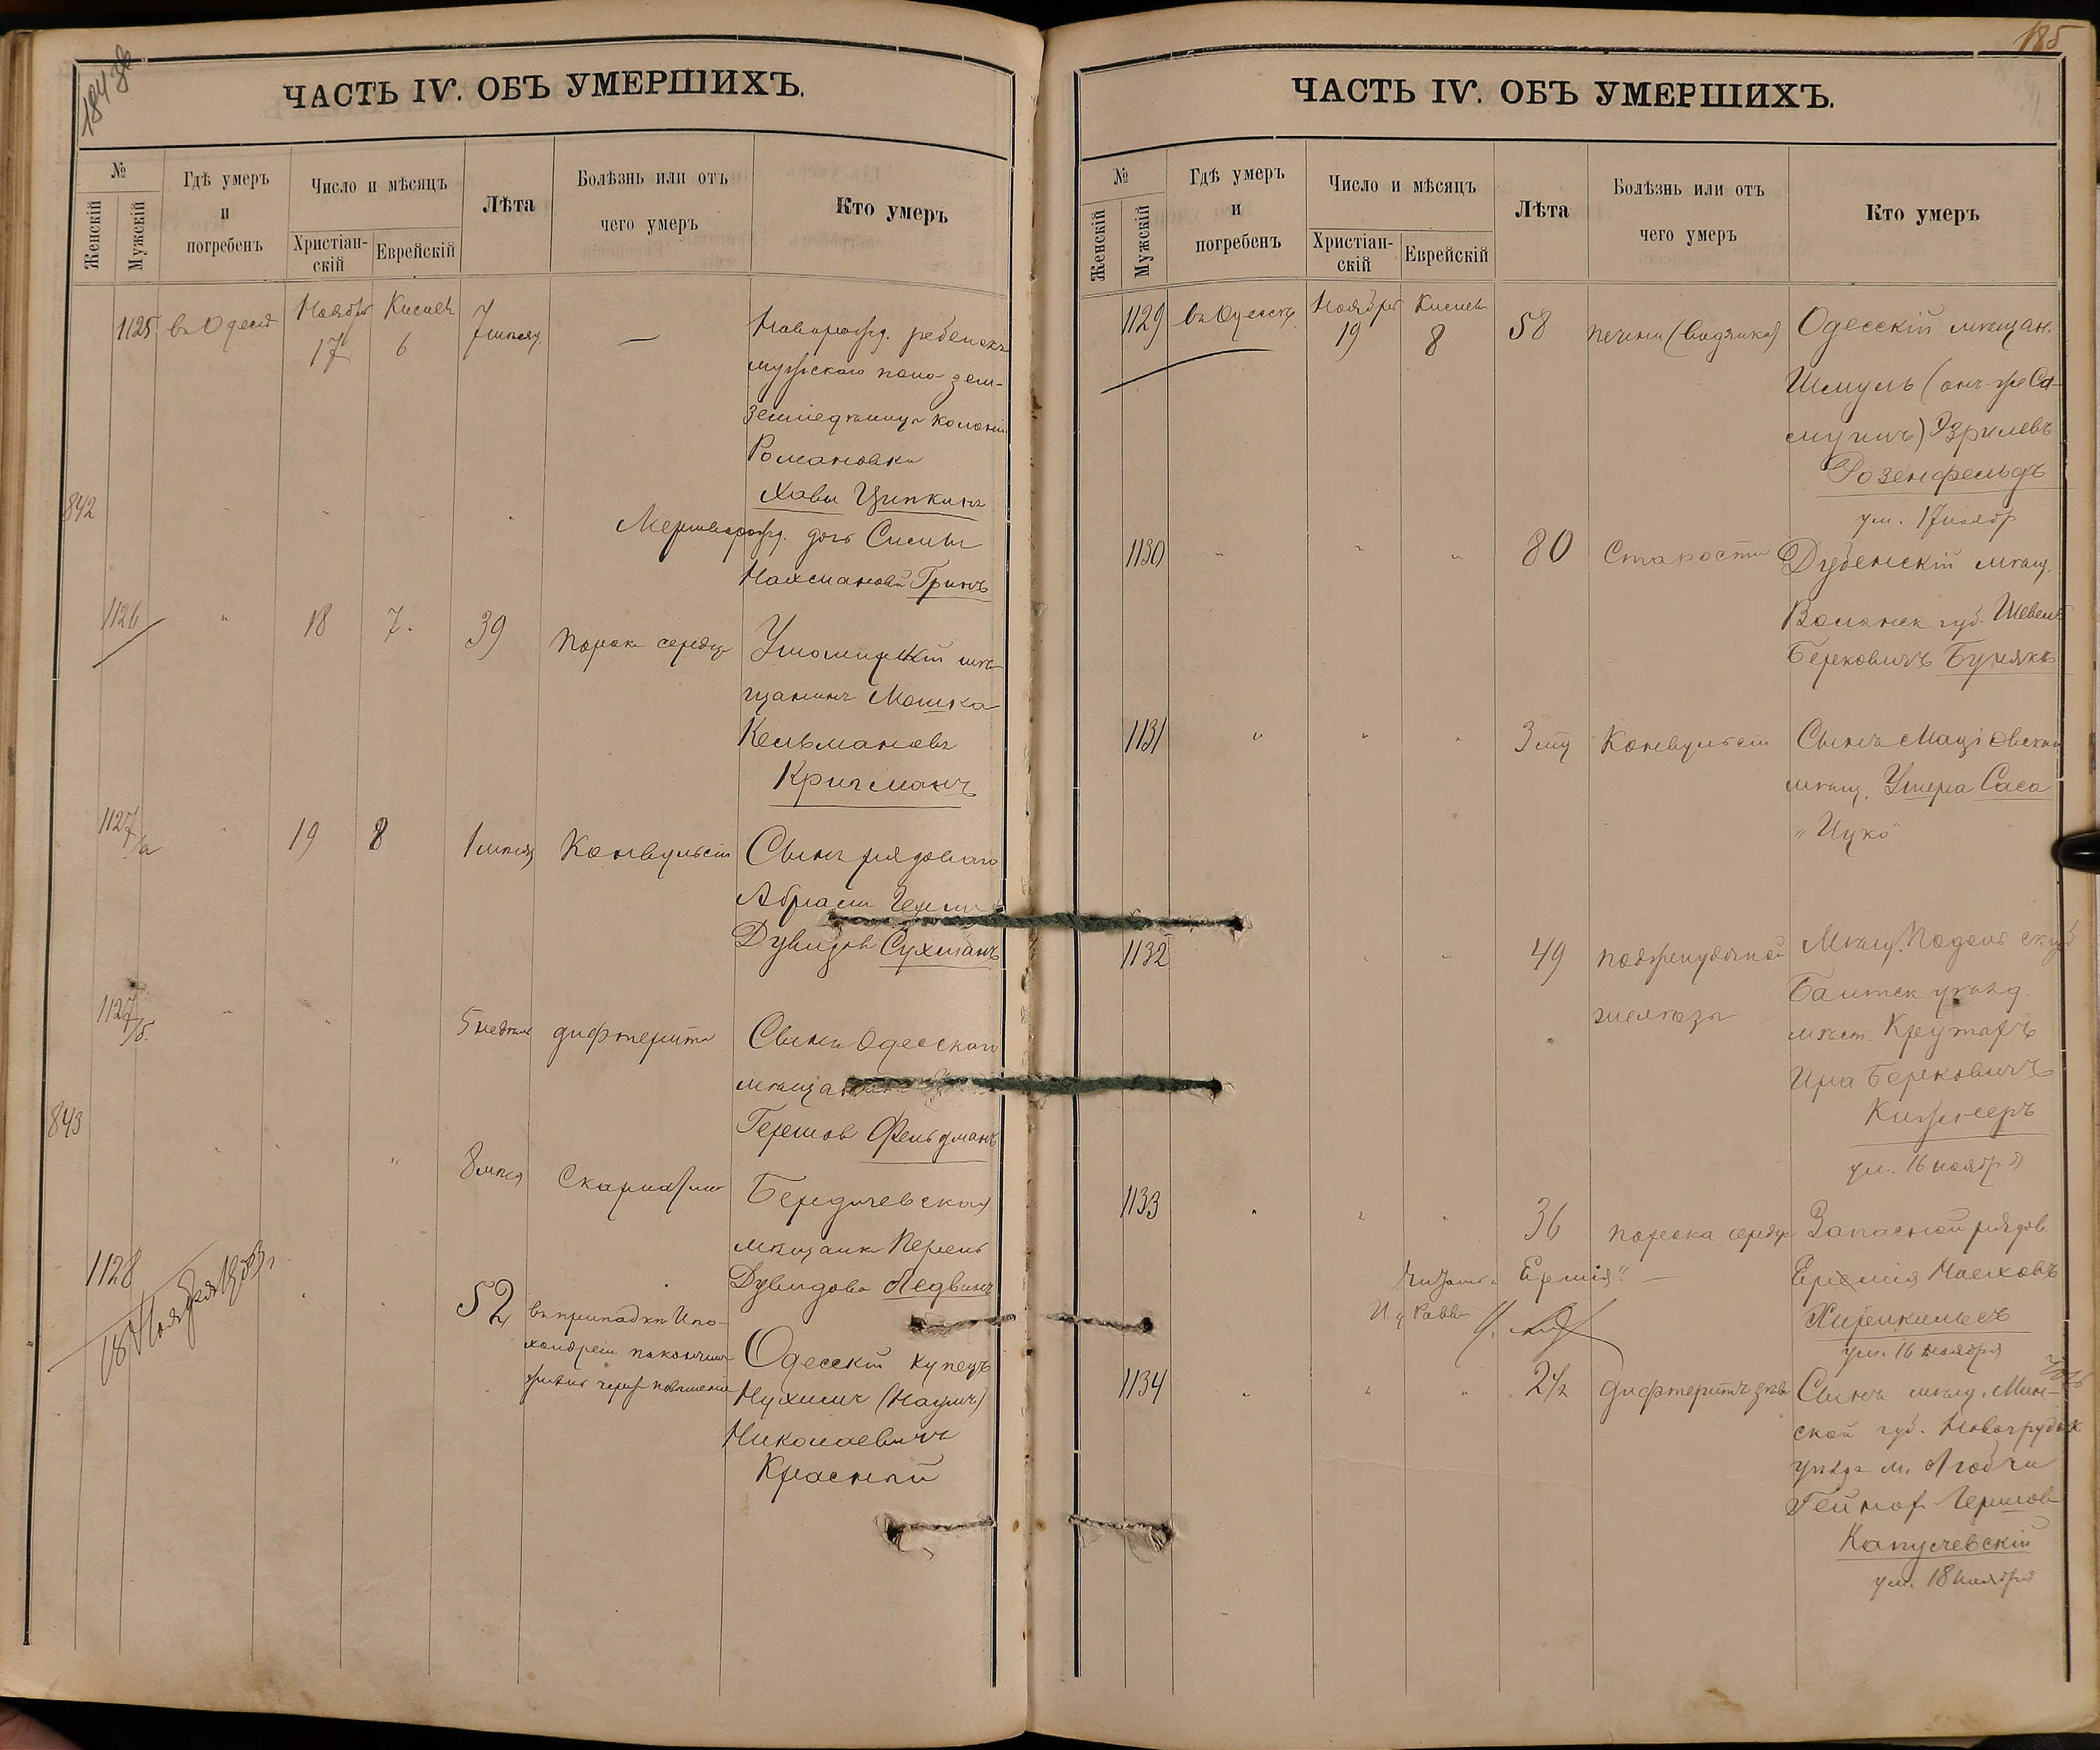 184 об
ЧАСТЬ IV. ОБЪ УМЕРШИХЪ.
№
Женскій
Мужскій
Гдѣ умеръ
и
погребенъ
Число и мѣсяцъ
Христіан-
скій
Еврейскій
Лѣта
Болѣзнь или отъ
чего умеръ
Кто умеръ
1125 Ноября Кислев 7
17 6 —
Новорожд. ребенокъ
мужского пола
колоніи
Романовки
Хави Ципкинъ
842
Мертворожд. дочь
Нахмановой Гринъ
1126 " 18 7. 39 Порокъ сердца
мѣ-
щанинъ Мошка
Кельмановъ
Кригманъ
1127/а 19 8 1 мѣсяц Конвульсіи Сынъ рядового
Абрама
Дувидов Сухманъ
1127/б. 5 недѣль дифтеритъ Сынъ Одесскаго
Гершов Фельдманъ
843 " 8 мѣся
Бердичевская
мѣщанка Перель
Дувидова Ледвинъ
1128 52 въ припадкѣ Ипо-
хондріи покончилъ
жизнь через повѣшеніе
Одесскій купецъ
Нухимъ (Наумъ)
Николаевичъ
Красный
18 Ноября 1903 г
185
ЧАСТЬ IV. ОБЪ УМЕРШИХЪ.
№
Женскій
Мужскій
Гдѣ умеръ
и
погребенъ
Число и мѣсяцъ
Христіан-
скій
Еврейскій
Лѣта
Болѣзнь или отъ
чего умеръ
Кто умеръ
1129 въ Одессѣ Ноября Кислев
19 8 58 печени (водянка) Одесскій мѣщан.
Шмуль (онъ-же Са-
муилъ) Эзрилевъ
Розенфельдъ
ум. 17 ноябр
1130 " " " 80 Старости Дубенскій мѣщ.
Волынск губ.
Берковичъ Бунякъ
1131 " " " Конвульсіи Сынъ Маціовскаго
мѣщ. Ушера Саса
"Ицко"
1132 " " 49 поджелудочной
железы
Мѣщ. Подольск. губ
Балтск уѣзд.
мѣст. Крутыхъ
Ира Берковичъ
Кижнеръ
ум. 16 ноября
1133 " " " 36 порока сердца Запасной рядов.
Еремія
Хиренкильесъ
ум. 16 ноября
"Еремія" —
И. д Равви
1134 " " " 2½ дифтеритъ зѣва Сынъ мѣщ. Мин-
ской губ. Новогрудск
уѣзда м. Любчи
Гершов
Капучевскій
ум. 18 ноября